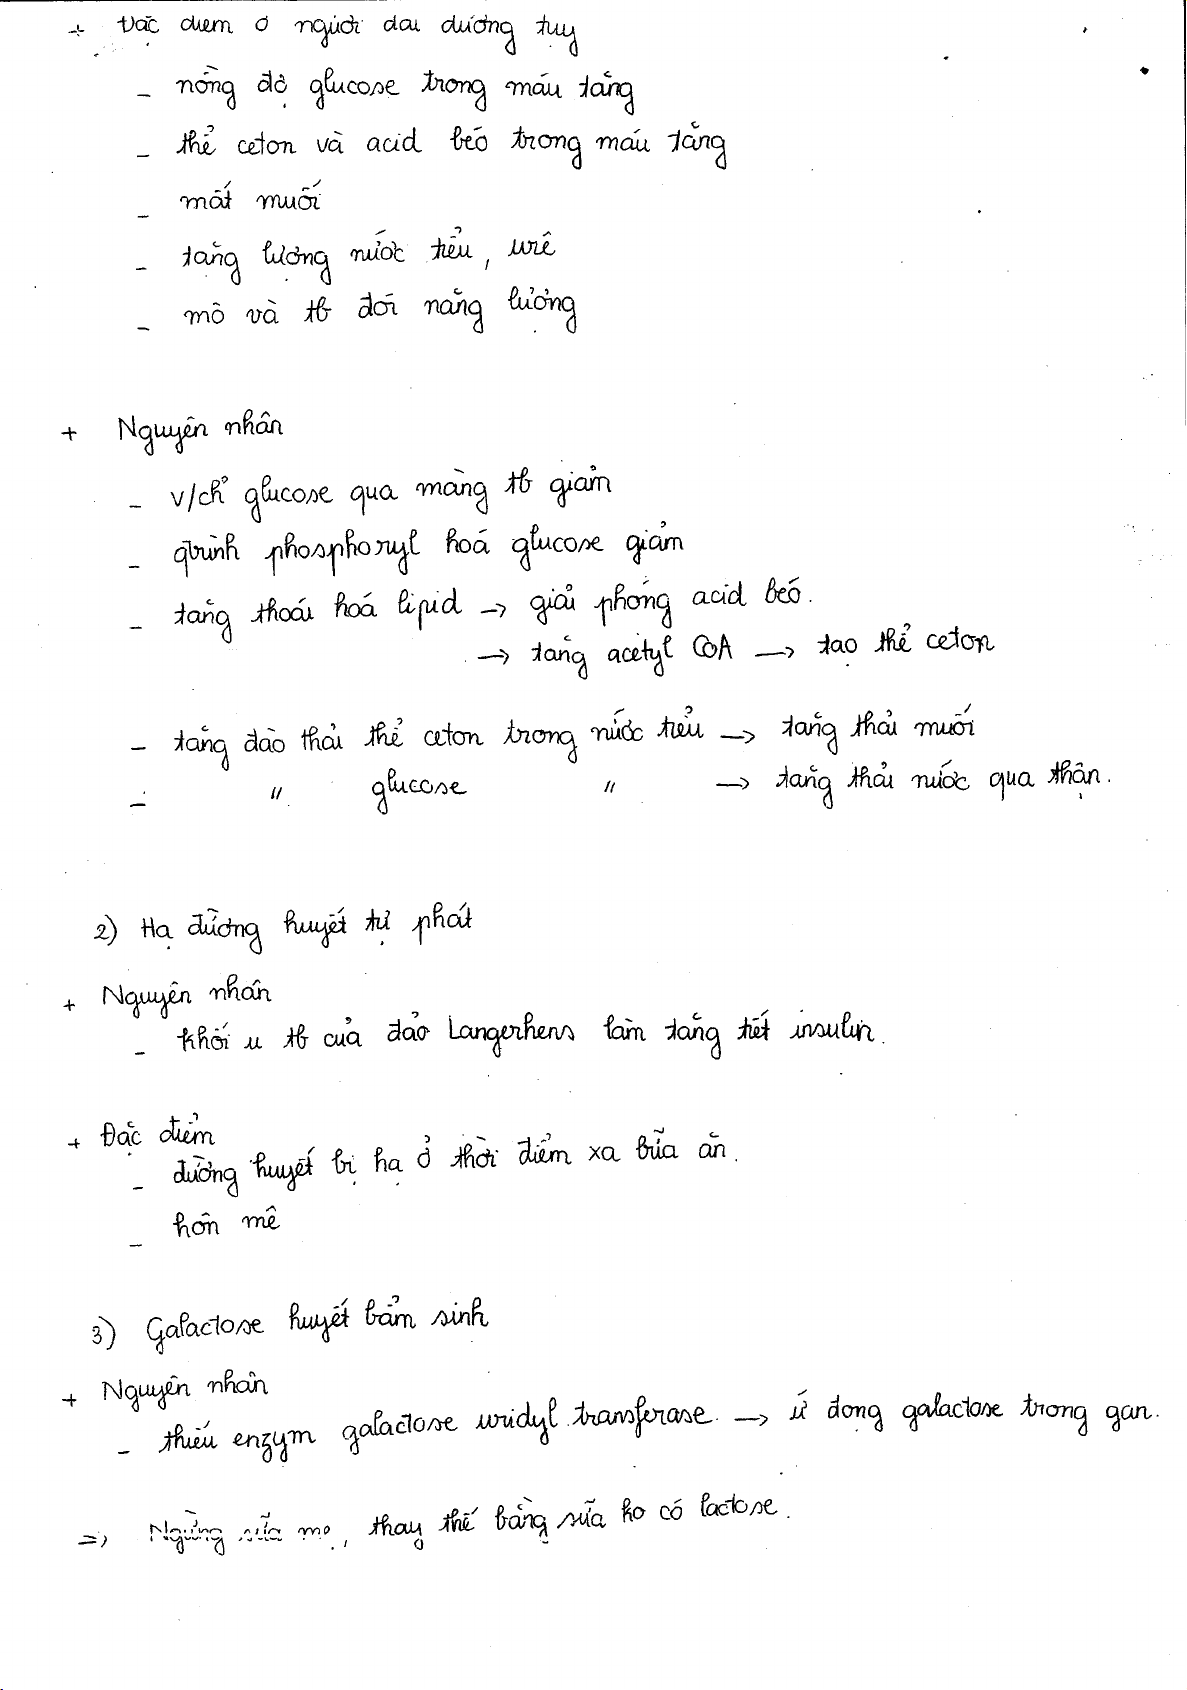 + Đặc điểm ở người đái đường tụy
- nồng độ glucose trong máu tăng
- thể ceton và acid béo trong máu tăng
- mất muối
- tăng lượng nước tiểu, urê
- mô và tb đói năng lượng
+ Nguyên nhân
- v/ch° glucose qua màng tb giảm
- qtrình phosphoryl hoá glucose giảm
- tăng thoái hoá lipid → giải phóng acid béo.
→ tăng acetyl CoA → tạo thể ceton
- tăng đào thải thể ceton trong nước tiểu → tăng thải muối
- " glucose " → tăng thải nước qua thận.
2) Hạ đường huyết tự phát
+ Nguyên nhân
- khối u tb của đảo Langerhens làm tăng tiết insulin.
+ Đặc điểm
- đường huyết bị hạ ở thời điểm xa bữa ăn.
- hôn mê
3) Galactose huyết bẩm sinh
+ Nguyên nhân
- thiếu enzym galactose uridyl transferase → ứ đọng galactose trong gan.
=> Ngừng sữa mẹ, thay thế bằng sữa ko có lactose.